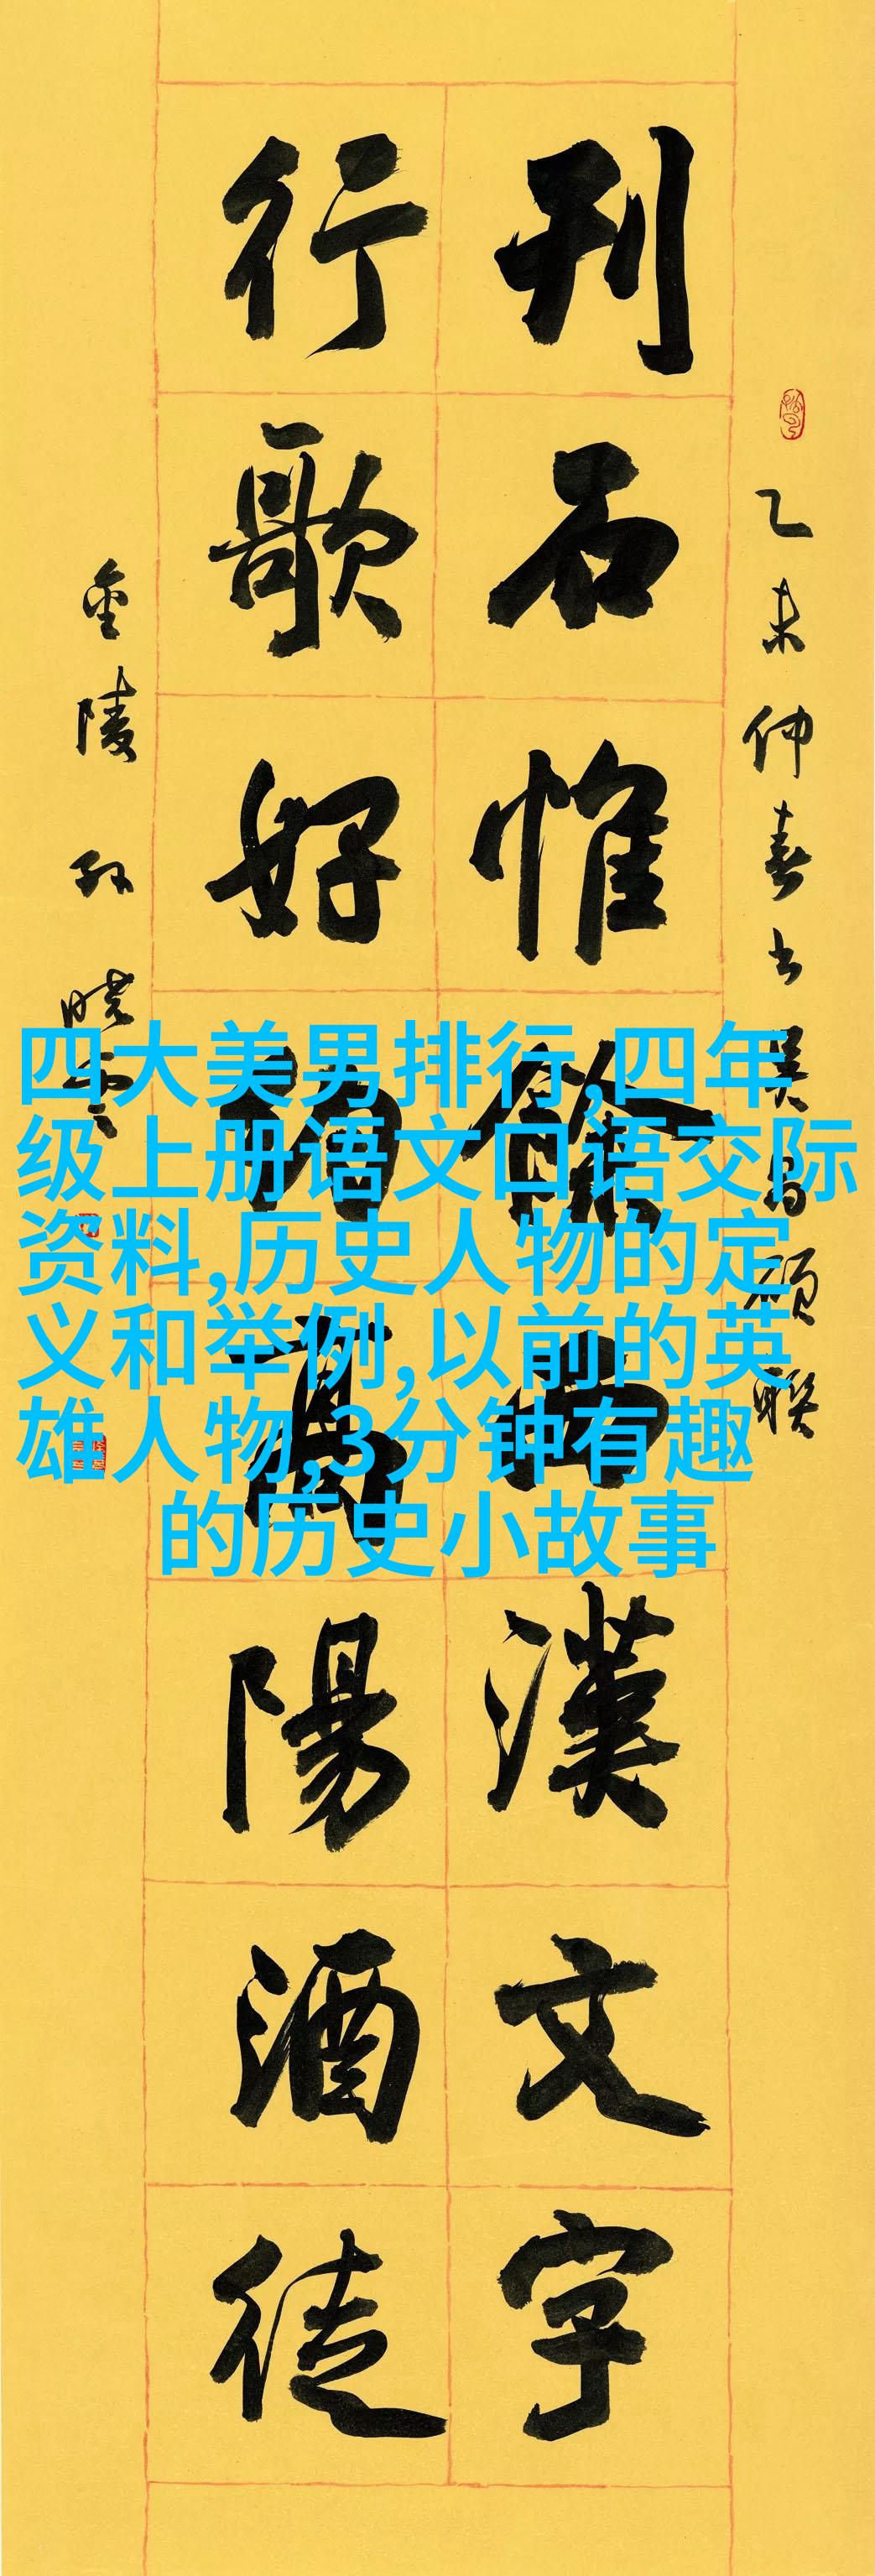 乙未仲春书吴昌硕联
刊石惟餘西漢文字
行歌好約高陽酒徒
金陵孙晓云
四大美男排行,四年
级上册语文口语交际
资料,历史人物的定
义和举例,以前的英
雄人物,3分钟有趣
的历史小故事